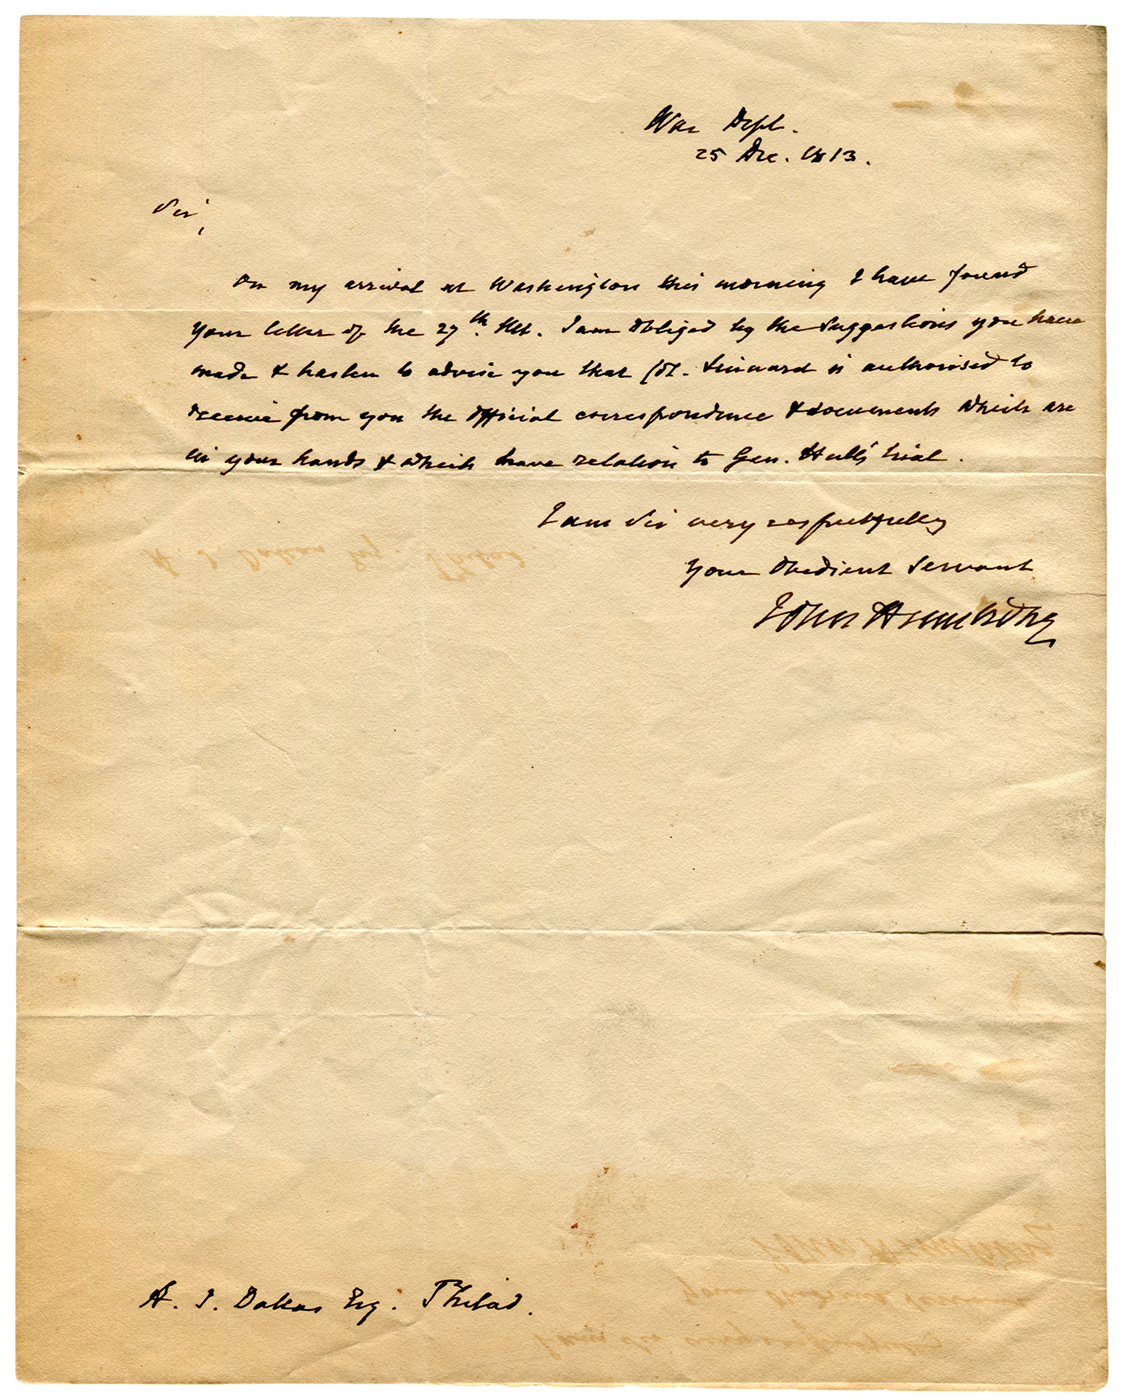 War Dept.
25 Dec. 1813.
Sir,
On my arrival at Washington this morning I have found
your letter of the 27th Ult. I am obliged by the suggestions you have
made & hasten to advise you that Lt. is authorised to
receive from you the official correspondence & documents which are
in your hands & which have relation to Gen. Hull's trial.
I am Sir very respectfully
Your Obedient Servant
John Armstrong
A. J. Dallas Esq. Philad.